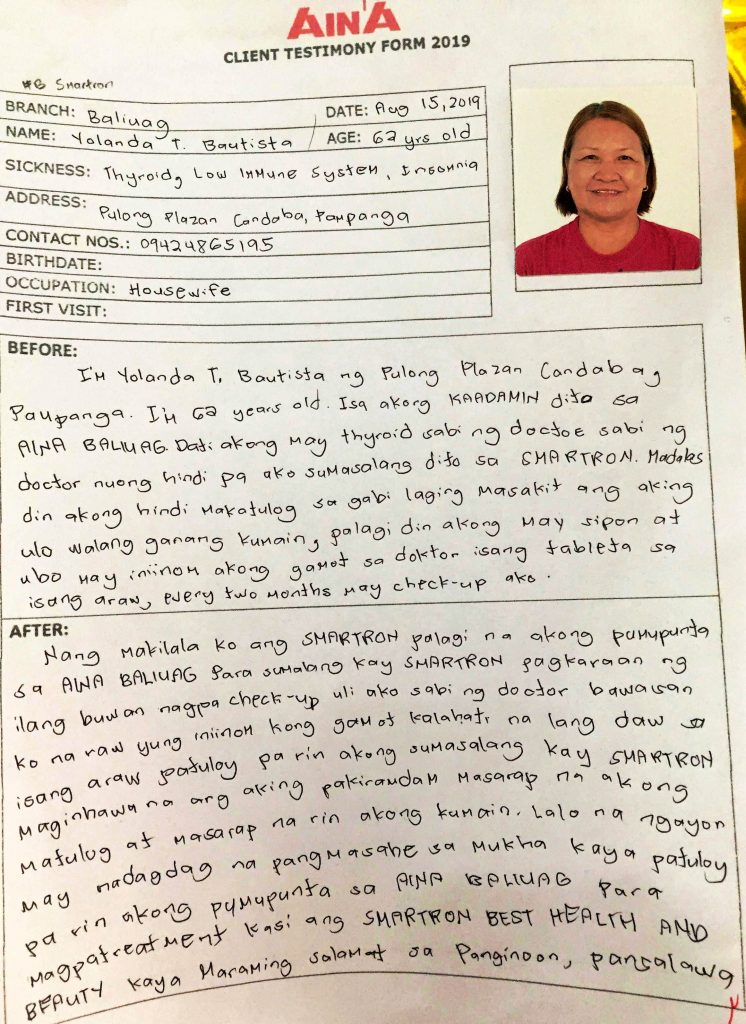 AINA
CLIENT TESTIMONY FORM 2019
#8 Smartron
BRANCH: Baliuag DATE: Aug 15, 2019
NAME: Yolanda T. Bautista AGE: 62 yrs old
SICKNESS: Thyroid, Low Immune System, Insomnia
ADDRESS: Pulong Plazan Candaba, Pampanga
CONTACT NOS.: 09424865195
BIRTHDATE:
OCCUPATION: Housewife
FIRST VISIT:
BEFORE:
I'm Yolanda T. Bautista ng Pulong Plazan Candaba,
Pampanga. I'm 62 years old. Isa akong KAADAMIN dito sa
AINA BALIUAG. Dati akong may thyroid sabi ng doctoe sabi ng
doctor nuong hindi pa ako sumasalang dito sa SMARTRON. Madalas
din akong hindi makatulog sa gabi laging masakit ang aking
ulo walang ganang kumain, palagi din akong may sipon at
ubo may iniinom akong gamot sa doktor isang tableta sa
isang araw, every two months may check-up ako.
AFTER:
Nang makilala ko ang SMARTRON palagi na akong pumupunta
sa AINA BALIUAG para sumalang kay SMARTRON pagkaraan ng
ilang buwan nagpa check-up uli ako sabi ng doctor bawasan
ko na raw yung iniinom kong gamot kalahati na lang daw sa
isang araw patuloy pa rin akong sumasalang kay SMARTRON
maginhawa na ang aking pakiramdam masarap na akong
matulog at masarap na rin akong kumain. Lalo na ngayon
may nadagdag na pangmasahe sa mukha kaya patuloy
pa rin akong pumupunta sa AINA BALIUAG para
magpatreatment kasi ang SMARTRON BEST HEALTH AND
BEAUTY kaya maraming salamat sa Panginoon, pansalawa